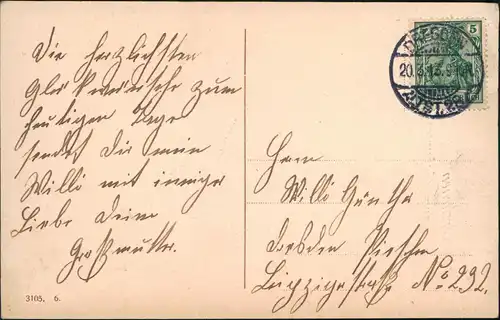 Die herzlichsten
Glückwünsche zum
heutigen Tage
sendet Dir mein
Willi mit inniger
Liebe Deine
Großmutter.
3105. 6.
5
DRESDEN
20.3.13. 9
Herrn
Willi Günther
Dresden Pieschen
Leipzigerstraße No 232.